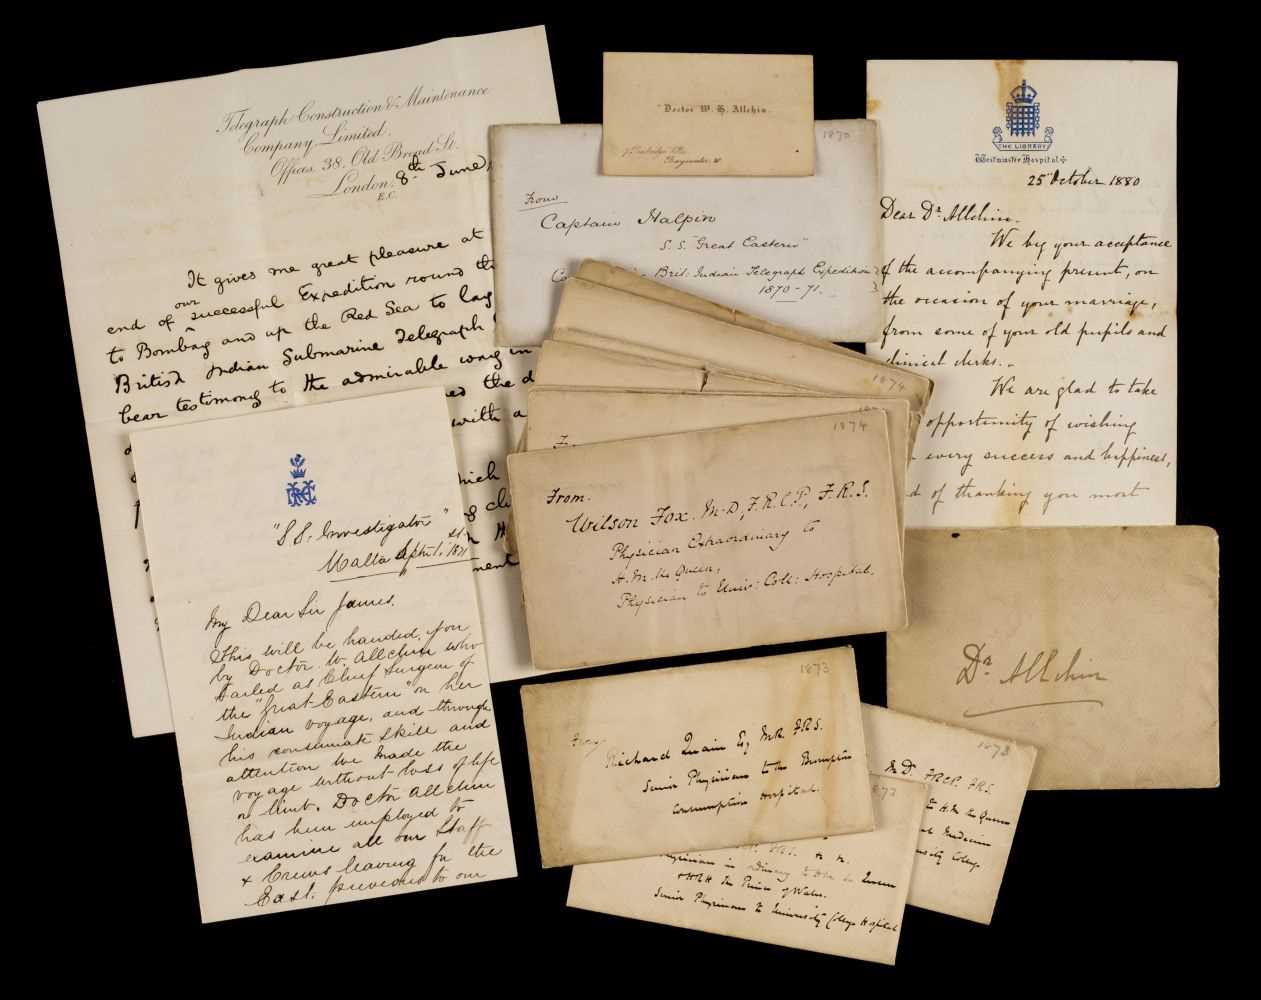 Telegraph Construction & Maintenance
Company Limited.
Offices, 38, Old Broad St.
London. 8th June,
E.C.
It gives me great pleasure at
our
end of successful Expedition round the
to Bombay and up the Red Sea to lay
British Indian Submarine Telegraph
bear testimony to the admirable way in
the d
with a
hich
ment
Doctor W. H. Allchin.
Bayswater. W
1870
From
Captain Halpin
S.S. "Great Eastern"
Brit: Indian Telegraph Expedition
1870-71.
THE LIBRARY
Westminster Hospital
25 October 1880
Dear Dr. Allchin.
We beg your acceptance
of the accompanying present, on
the occasion of your marriage,
from some of your old pupils and
clinical clerks.
We are glad to take
opportunity of wishing
every success and happiness,
d of thanking you most
1874
1874
From.
Wilson Fox. M.D, F.R.C.P, F.R.S.
Physician Extraordinary to
H.M. the Queen,
Physician to Univ: Coll: Hospital.
"S.S. Investigator"
Malta April 1st 1871
My Dear Sir James.
This will be handed you
by Doctor W Allchin who
sailed as Chief Surgeon of
the "Great Eastern" on her
Indian voyage, and through
his consumate skill and
attention we made the
voyage without loss of life
or limb. Doctor Allchin
has been employed to
examine all our Staff
& Crews leaving for the
East. previous to our
Dr Allchin
1873
From
Richard Quain Esq M.D. F.R.S.
Senior Physician to the Brompton
Consumption Hospital.
1873
M.D. F.R.C.P. F.R.S.
H.M the Queen
Medicine
sity College
1873
F.R.S.
Physician in Ordinary to H.M the Queen
& H.R.H the Prince of Wales.
Senior Physician to University College Hospital